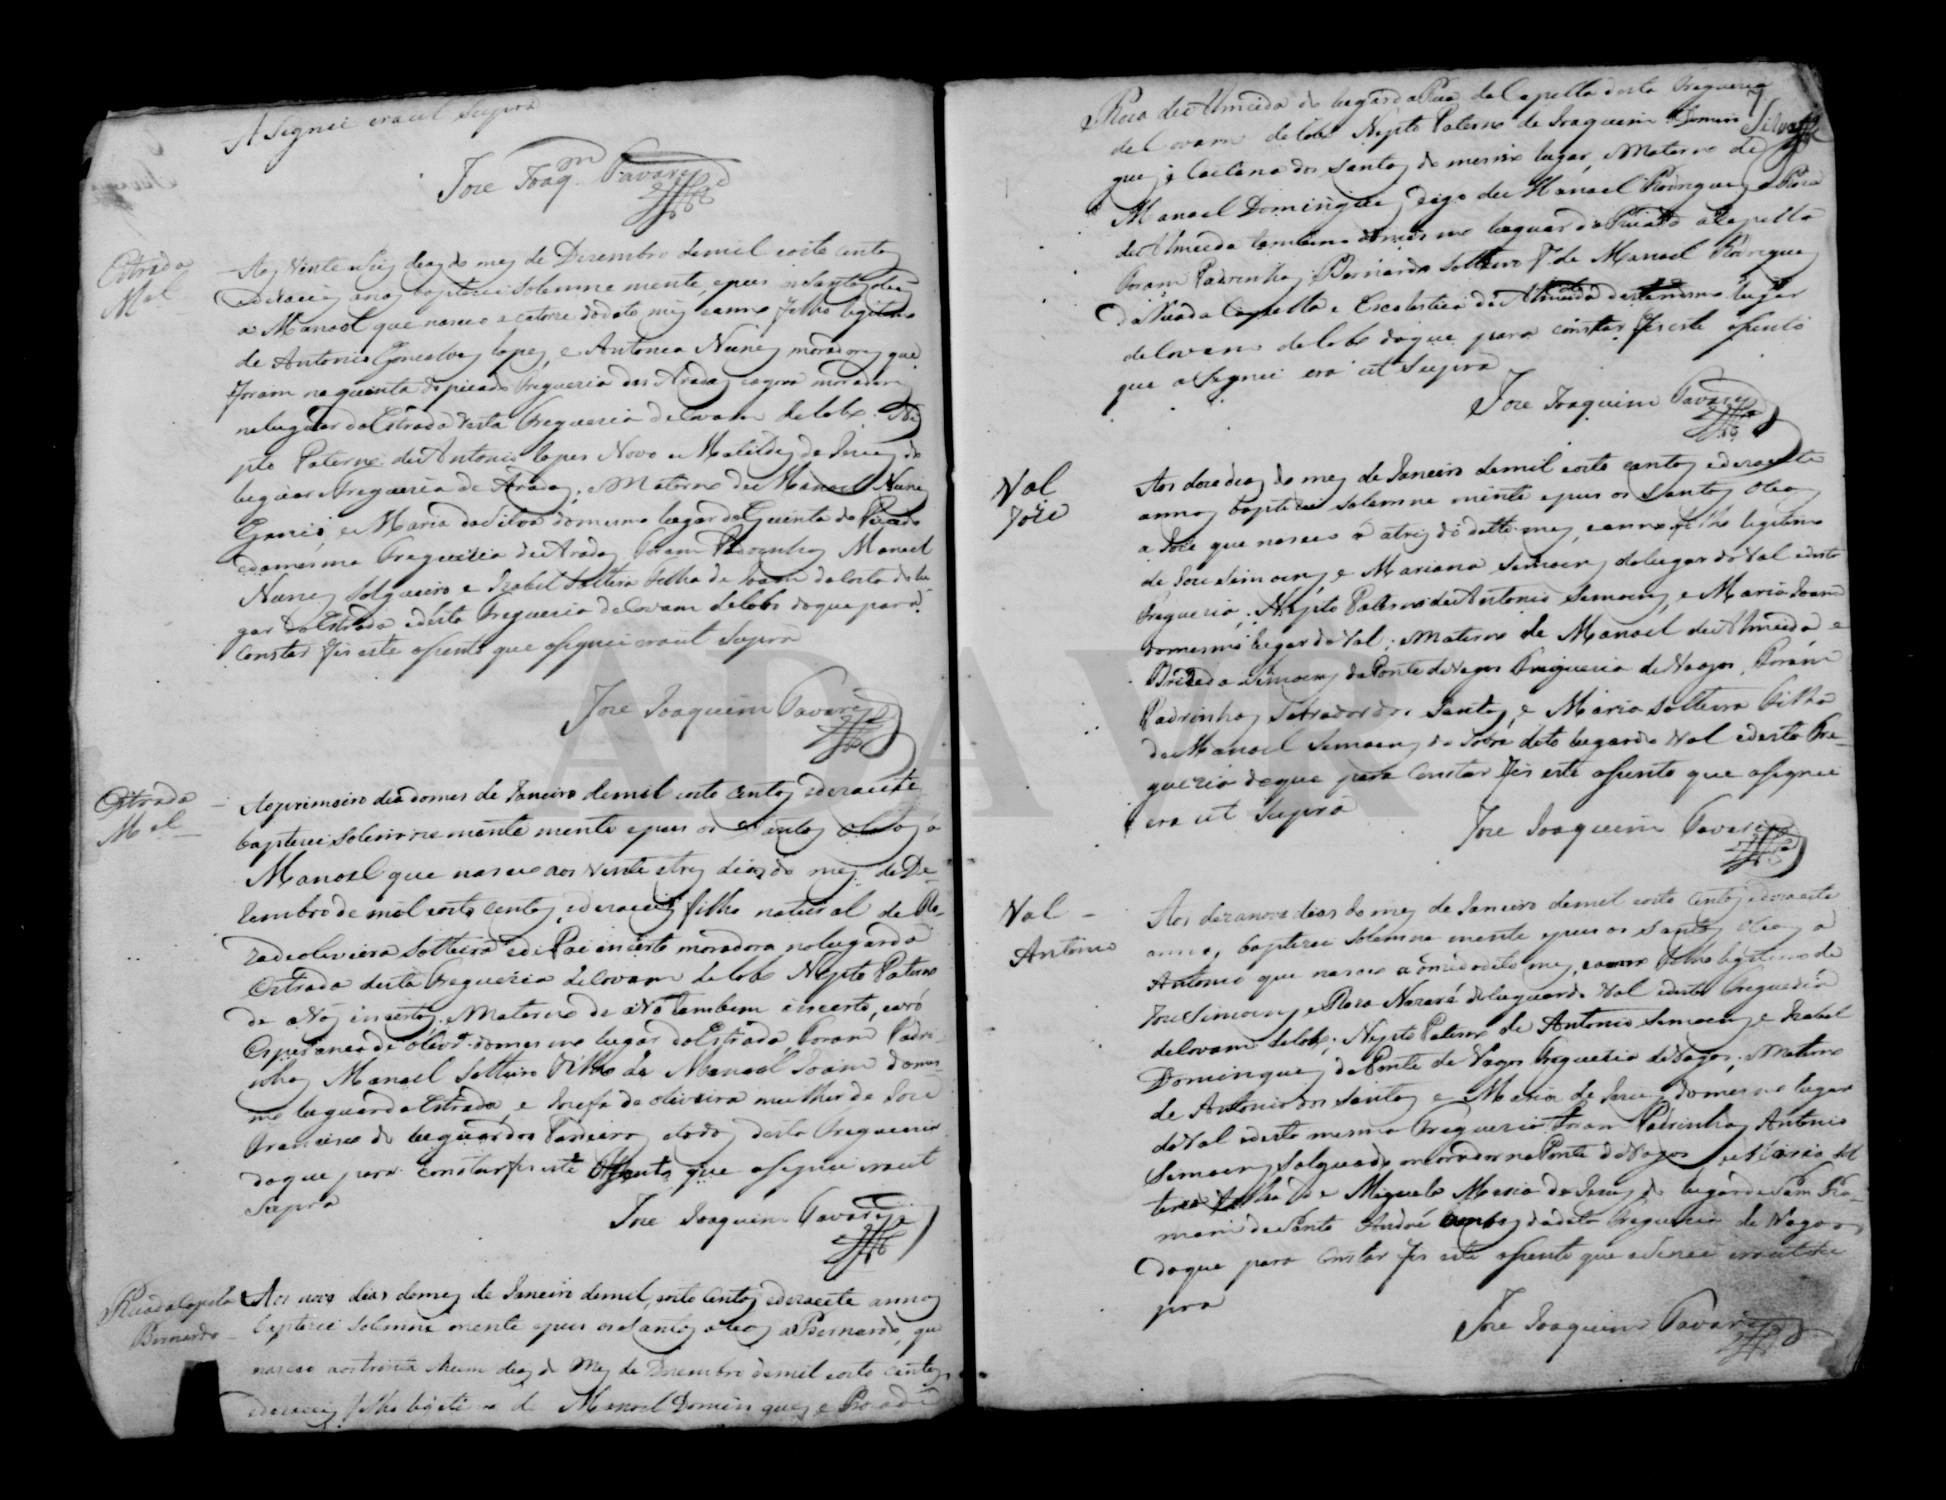 Asignei era ut supra
Joze Joaq.m Tavares
Estrada
M.el
Aos vinte e seis dias do mez de Dezembro de mil e oito centos
e dezaceis anos baptizei solemne mente, e puis os santos oleos
a Manoel que nasceo a catorze do dito mez e anno filho legitimo
de Antonio Gonsalves lopes, e Antonia Nunes moradores que
foram na quinta do picado freguezia das Aradas e agora moradores
no lugar da Estrada desta freguezia de Covam de lobo. Ne
pto Paterno de Antonio lopes Novo e Matildes de Jezus do
lugar e freguezia de Aradas; Materno de Manoel Nunes
e Maria da Silva do mesmo lugar da Quinta do Picado
e da mesma freguezia de Aradas foram Padrinhos Manoel
Nunes Salgueiro e Izabel solteira filha de Joam da Costa do lu
gar da Estrada e desta freguezia de Covam de lobo do que para
constar fis este asento que asignei era ut supra
Joze Joaquim Tavares
Estrada
M.el
Ao primeiro dia do mes de Janeiro de mil e oito centos e dezacete
baptizei solemne mente mente e puis os santos oleos a
Manoel que nasceo aos vinte e tres dias do mez de De-
zembro de mil e oito centos e dezaceis filho natural de Ro-
za de oliveira solteira e de Pai incerto moradora no lugar da
Estrada desta freguezia de Covam de lobo Nepto Paterno
de Avós incertos. Materno de Avô tambem incerto, e avó
Esperança de oliv.ra do mesmo lugar da Estrada, foram Padri-
nhos Manoel solteiro filho de Manoel Joam do mes-
mo lugar da Estrada, e Jozefa de oliveira mulher de Joze
Francisco do lugar dos todos desta freguezia
do que para constar fis este Asento que asignei era ut
supra
Joze Joaquim Tavares
Rua da Capela
Bernardo
Aos nove dias do mez de Janeiro de mil, e oito centos e dezacete annos
baptizei solemne mente e puis os santos oleos a Bernardo, que
nasceo aos trinta e hum dias do Mez de Dezembro de mil e oito centos
e dezaceis filho legitimo de Manoel Domingues e Roza de
7
Silva
Roza de Almeida do lugar da Rua da Capella desta freguezia
de Covam de lobo Nepto Paterno de Joaquim Domin
gues e Caetana dos Santos do mesmo lugar, e Materno de
Manoel Domingues, digo de Manoel Rodrigues e Roza
de Almeida tambem do mesmo lugar da Rua da Capella
foram Padrinhos Bernardo solteiro f.o de Manoel Rodrigues
da Rua da Capella e Escolastica de Almeida deste mesmo lugar
de Covam de lobo do que para constar fis este asento
que asignei era ut supra
Joze Joaquim Tavares
Val
Joze
Aos doze dias do mez de Janeiro de mil e oito centos e dezacete
annos baptizei solemne mente e puis os santos oleos
a Joze que nasceo a tres do ditto mez, e anno filho legitimo
de Joze Simoens, e Mariana Simoens do lugar do Val e desta
freguezia, Nepto Paterno de Antonio Simoens, e Maria Joana
do mesmo lugar do Val; Materno de Manoel de Almeida e
Brizida Simoens da Ponte de Vagos freguezia de Vagos, foram
Padrinhos Salvador dos Santos, e Maria solteira filha
de Manoel Simoens do sobre dito lugar do Val e desta fre-
guezia do que para constar fis este asento que asignei
era ut supra
Joze Joaquim Tavares
Val
Antonio
Aos dezanove dias do mez de Janeiro de mil e oito centos e dezacete
annos, baptizei solemne mente e puis os santos oleos a
Antonio que nasceo a do dito mez, e anno filho legitimo de
Joze Simoens e Roza Nazaré do lugar do Val e desta freguezia
de Covam de lobo; Nepto Paterno de Antonio Simoens e Izabel
Domingues da Ponte de Vagos freguezia de Vagos; Materno
de Antonio dos Santos e Maria de Jezus do mesmo lugar
do Val e desta mesma freguezia foram Padrinhos Antonio
Simoens Salgado morador na Ponte de Vagos, e Maria sol
teira filha de Miguel e Maria de Jezus do lugar de Sam Ro-
mam de Santo André ambos da dita freguezia de Vagos
do que para constar fis este asento que asignei era ut su
pra
Joze Joaquim Tavares
ADAVR